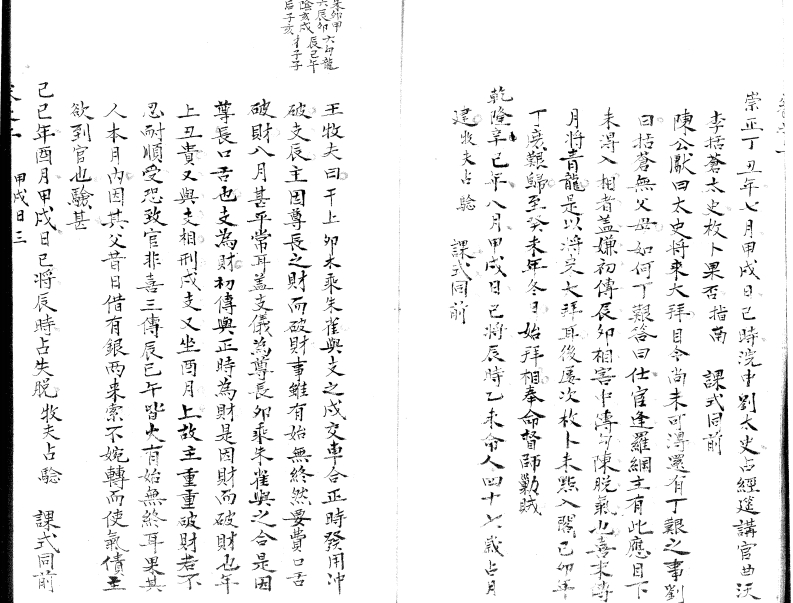 崇正丁丑年七月甲戌日巳時浣中劉太史占經筵講官曲沃
李括蒼太史枚卜果否 指南 課式同前
陳公獻曰太史將來大拜目今尚未可得還有丁艱之事劉
曰括蒼無父母如何丁艱答曰仕宦逢羅網主有此應目下
未得入相者蓋嫌初傳辰卯相害中傳勾陳脫氣也喜末傳
月將青龍是以將來大拜耳後屢次枚卜未點入閣己卯年
丁庶艱歸至癸未年冬月始拜相奉命督師勦賊
乾隆辛巳年八月甲戌日巳將辰時乙未命人四十七歲占月
建 牧夫占驗 課式同前
朱卯甲
六辰卯 六勾龍
陰亥戌 辰巳午
后子亥 才子子
王牧夫曰干上卯木乘朱雀與支之戌交車合正時發用冲
破支辰主因尊長之財而破財事雖有始無終然要費口舌
破財八月甚平常耳蓋支儀為尊長卯乘朱雀與之合是因
尊長口舌也支為財初傳與正時為財是因財而破財也年
上丑貴又與支相刑戌支又坐酉月上故主重重破財若不
忍耐順受恐致官非喜三傳辰巳午皆火有始無終耳果其
人本月內因其父昔日借有銀兩來索不婉轉而使氣債主
欲到官也驗甚
己巳年酉月甲戌日巳將辰時占失脫 牧夫占驗 課式同前
甲戌日三